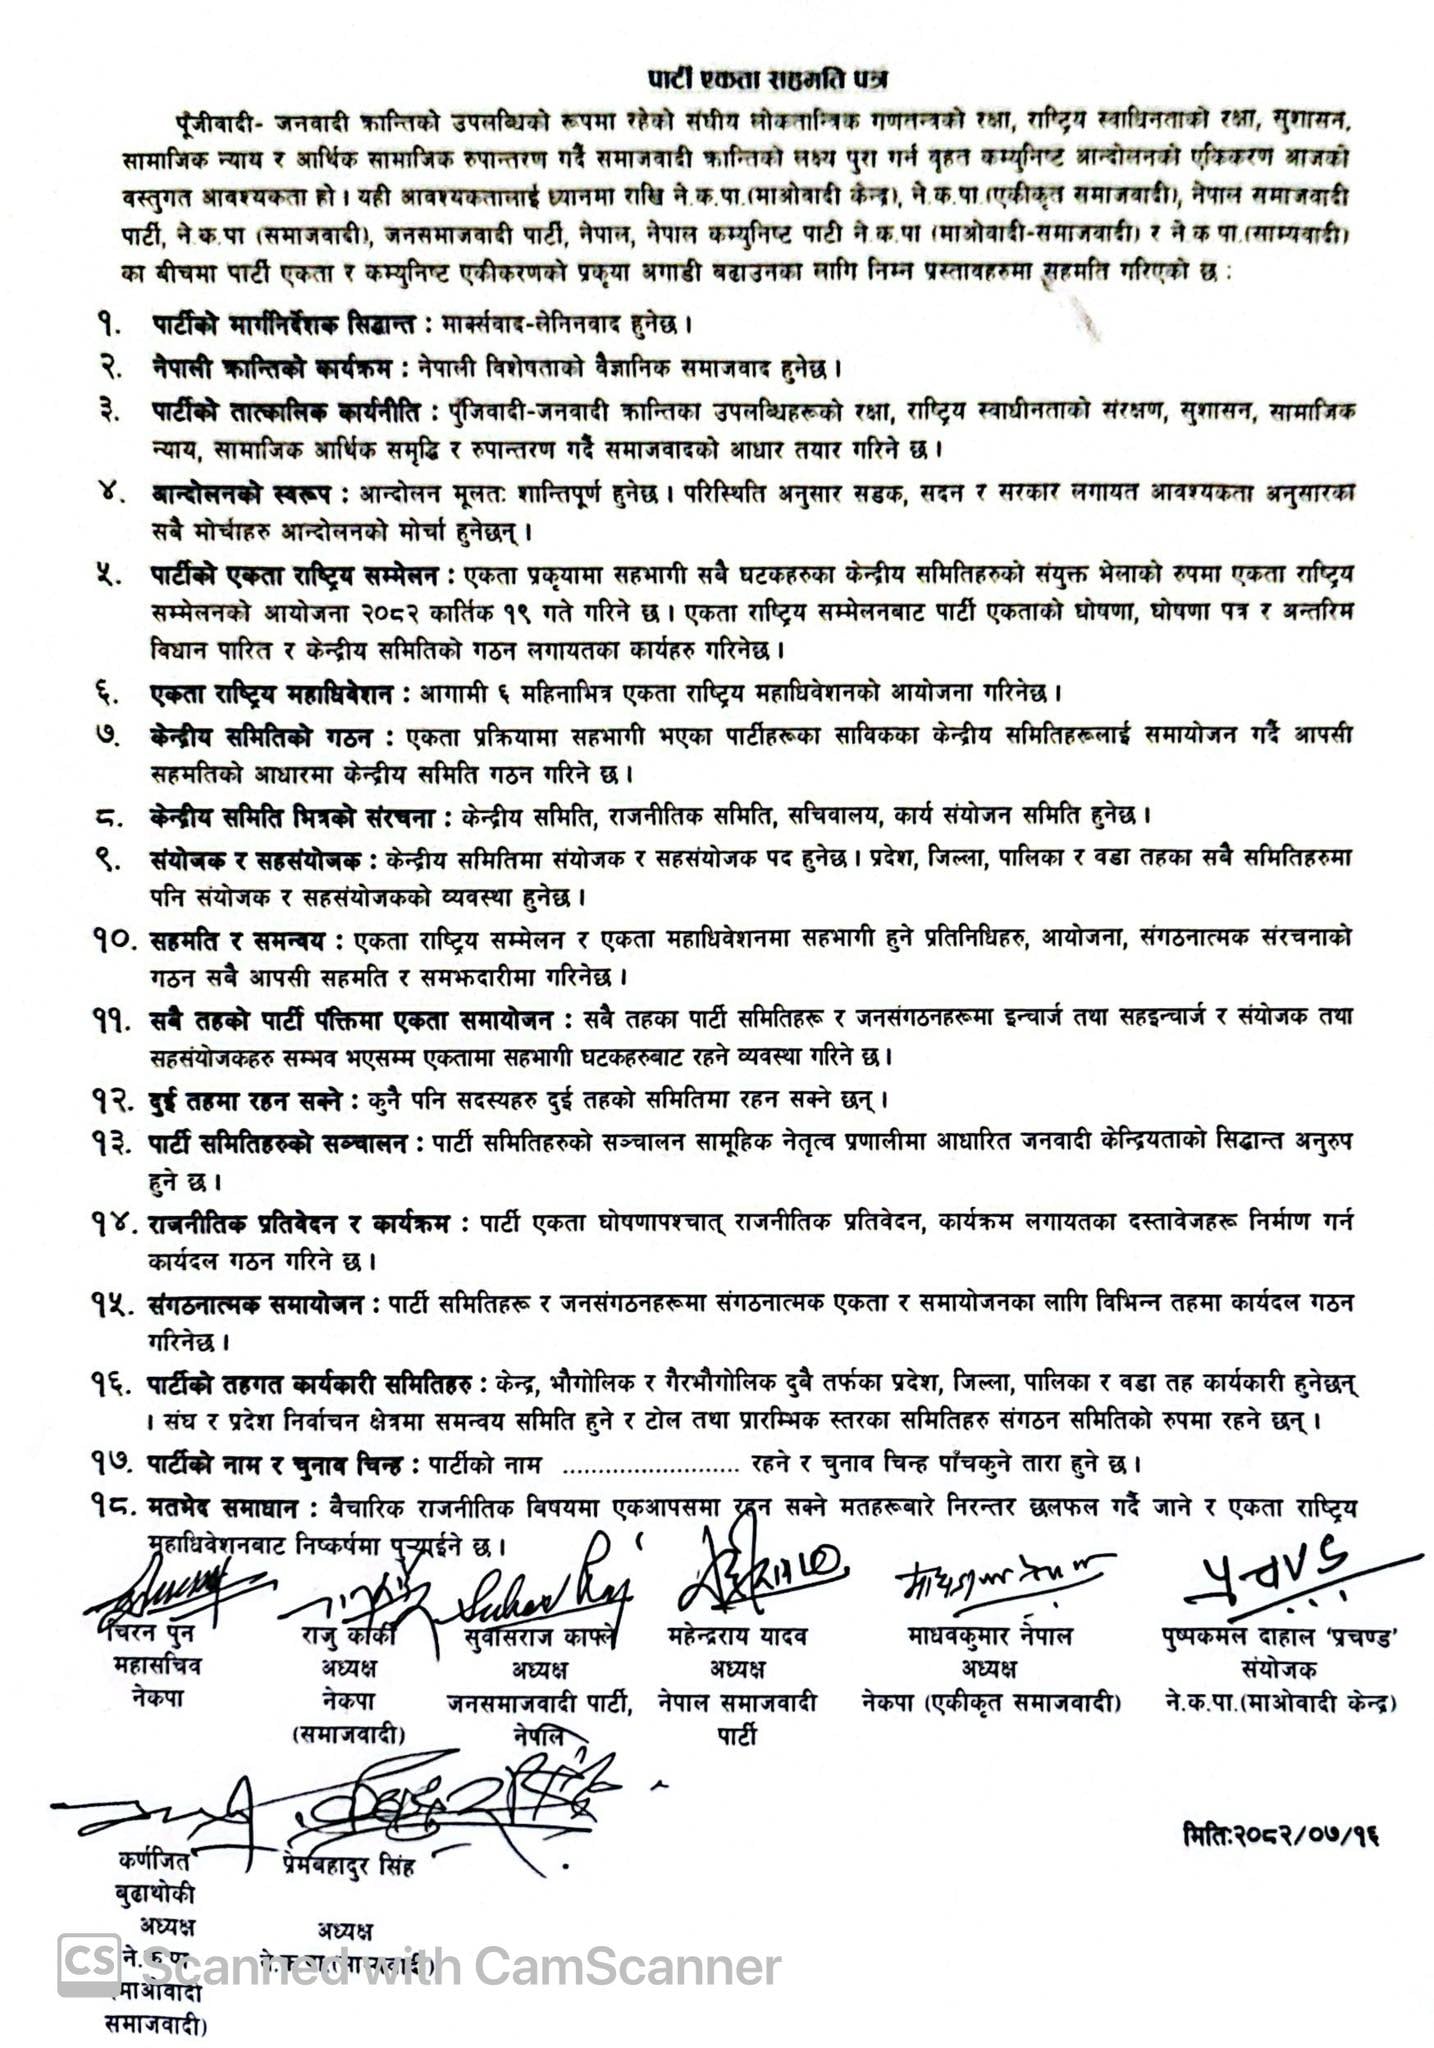 पार्टी एकता सहमति पत्र
पूँजीवादी- जनवादी क्रान्तिको उपलब्धिको रूपमा रहेको संघीय लोकतान्त्रिक गणतन्त्रको रक्षा, राष्ट्रिय स्वाधिनताको रक्षा, सुशासन,
सामाजिक न्याय र आर्थिक सामाजिक रुपान्तरण गर्दै समाजवादी क्रान्तिको लक्ष्य पुरा गर्न वृहत कम्युनिष्ट आन्दोलनको एकिकरण आजको
वस्तुगत आवश्यकता हो । यही आवश्यकतालाई ध्यानमा राखि ने.क.पा.(माओवादी केन्द्र), ने.क.पा.(एकीकृत समाजवादी), नेपाल समाजवादी
पार्टी, ने.क.पा (समाजवादी), जनसमाजवादी पार्टी, नेपाल, नेपाल कम्युनिष्ट पाटी ने.क.पा (माओवादी-समाजवादी) र ने.क.पा.(साम्यवादी)
का बीचमा पार्टी एकता र कम्युनिष्ट एकीकरणको प्रकृया अगाडी बढाउनका लागि निम्न प्रस्तावहरुमा सहमति गरिएको छ :
१. पार्टीको मार्गनिर्देशक सिद्धान्त : मार्क्सवाद-लेनिनवाद हुनेछ ।
२. नेपाली क्रान्तिको कार्यक्रम : नेपाली विशेषताको वैज्ञानिक समाजवाद हुनेछ ।
३. पार्टीको तात्कालिक कार्यनीति : पुँजिवादी-जनवादी क्रान्तिका उपलब्धिहरूको रक्षा, राष्ट्रिय स्वाधीनताको संरक्षण, सुशासन, सामाजिक
न्याय, सामाजिक आर्थिक समृद्धि र रुपान्तरण गर्दै समाजवादको आधार तयार गरिने छ ।
४. आन्दोलनको स्वरूप : आन्दोलन मूलतः शान्तिपूर्ण हुनेछ । परिस्थिति अनुसार सडक, सदन र सरकार लगायत आवश्यकता अनुसारका
सबै मोर्चाहरु आन्दोलनको मोर्चा हुनेछन् ।
५. पार्टीको एकता राष्ट्रिय सम्मेलन : एकता प्रकृयामा सहभागी सबै घटकहरुका केन्द्रीय समितिहरुको संयुक्त भेलाको रुपमा एकता राष्ट्रिय
सम्मेलनको आयोजना २०८२ कार्तिक १९ गते गरिने छ । एकता राष्ट्रिय सम्मेलनबाट पार्टी एकताको घोषणा, घोषणा पत्र र अन्तरिम
विधान पारित र केन्द्रीय समितिको गठन लगायतका कार्यहरु गरिनेछ ।
६. एकता राष्ट्रिय महाधिवेशन : आगामी ६ महिनाभित्र एकता राष्ट्रिय महाधिवेशनको आयोजना गरिनेछ ।
७. केन्द्रीय समितिको गठन : एकता प्रक्रियामा सहभागी भएका पार्टीहरूका साविकका केन्द्रीय समितिहरूलाई समायोजन गर्दै आपसी
सहमतिको आधारमा केन्द्रीय समिति गठन गरिने छ ।
८. केन्द्रीय समिति भित्रको संरचना : केन्द्रीय समिति, राजनीतिक समिति, सचिवालय, कार्य संयोजन समिति हुनेछ ।
९. संयोजक र सहसंयोजक : केन्द्रीय समितिमा संयोजक र सहसंयोजक पद हुनेछ । प्रदेश, जिल्ला, पालिका र वडा तहका सबै समितिहरुमा
पनि संयोजक र सहसंयोजकको व्यवस्था हुनेछ ।
१०. सहमति र समन्वय : एकता राष्ट्रिय सम्मेलन र एकता महाधिवेशनमा सहभागी हुने प्रतिनिधिहरु, आयोजना, संगठनात्मक संरचनाको
गठन सबै आपसी सहमति र समझदारीमा गरिनेछ ।
११. सबै तहको पार्टी पंक्तिमा एकता समायोजन : सबै तहका पार्टी समितिहरू र जनसंगठनहरूमा इन्चार्ज तथा सहइन्चार्ज र संयोजक तथा
सहसंयोजकहरु सम्भव भएसम्म एकतामा सहभागी घटकहरुबाट रहने व्यवस्था गरिने छ ।
१२. दुई तहमा रहन सक्ने : कुनै पनि सदस्यहरु दुई तहको समितिमा रहन सक्ने छन् ।
१३. पार्टी समितिहरुको सञ्चालन : पार्टी समितिहरुको सञ्चालन सामूहिक नेतृत्व प्रणालीमा आधारित जनवादी केन्द्रियताको सिद्धान्त अनुरुप
हुने छ ।
१४. राजनीतिक प्रतिवेदन र कार्यक्रम : पार्टी एकता घोषणापश्चात् राजनीतिक प्रतिवेदन, कार्यक्रम लगायतका दस्तावेजहरू निर्माण गर्न
कार्यदल गठन गरिने छ ।
१५. संगठनात्मक समायोजन : पार्टी समितिहरू र जनसंगठनहरूमा संगठनात्मक एकता र समायोजनका लागि विभिन्न तहमा कार्यदल गठन
गरिनेछ ।
१६. पार्टीको तहगत कार्यकारी समितिहरु : केन्द्र, भौगोलिक र गैरभौगोलिक दुबै तर्फका प्रदेश, जिल्ला, पालिका र वडा तह कार्यकारी हुनेछन्
। संघ र प्रदेश निर्वाचन क्षेत्रमा समन्वय समिति हुने र टोल तथा प्रारम्भिक स्तरका समितिहरु संगठन समितिको रुपमा रहने छन् ।
१७. पार्टीको नाम र चुनाव चिन्ह : पार्टीको नाम ......................... रहने र चुनाव चिन्ह पाँचकुने तारा हुने छ ।
१८. मतभेद समाधान : वैचारिक राजनीतिक विषयमा एकआपसमा रहन सक्ने मतहरूबारे निरन्तर छलफल गर्दै जाने र एकता राष्ट्रिय
महाधिवेशनबाट निष्कर्षमा पुर्‍याईने छ ।
चिरन पुन राजु कार्की सुवासराज काफ्ले महेन्द्रराय यादव माधवकुमार नेपाल पुष्पकमल दाहाल 'प्रचण्ड'
महासचिव अध्यक्ष अध्यक्ष अध्यक्ष अध्यक्ष संयोजक
नेकपा नेकपा जनसमाजवादी पार्टी, नेपाल समाजवादी नेकपा (एकीकृत समाजवादी) ने.क.पा.(माओवादी केन्द्र)
(समाजवादी) नेपाल पार्टी
मितिः२०८२/०७/१६
कर्णजित प्रेमबहादुर सिंह
बुढाथोकी
अध्यक्ष अध्यक्ष
ने.क.पा
(माओवादी
समाजवादी)
CS Scanned with CamScanner